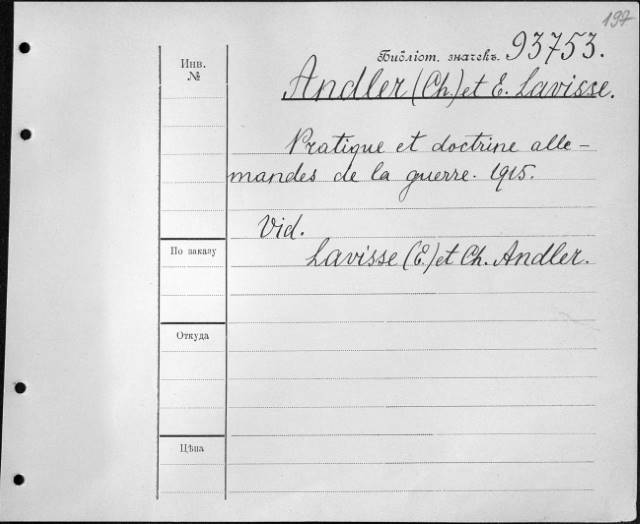 197
Инв.
№
Библіот. значекъ. 93753.
Andler (Ch.) et E. Lavisse.
Pratique et doctrine alle-
mandes de la guerre. 1915.
Vid.
Lavisse (E.) et Ch. Andler.
По заказу
Откуда
Цѣна